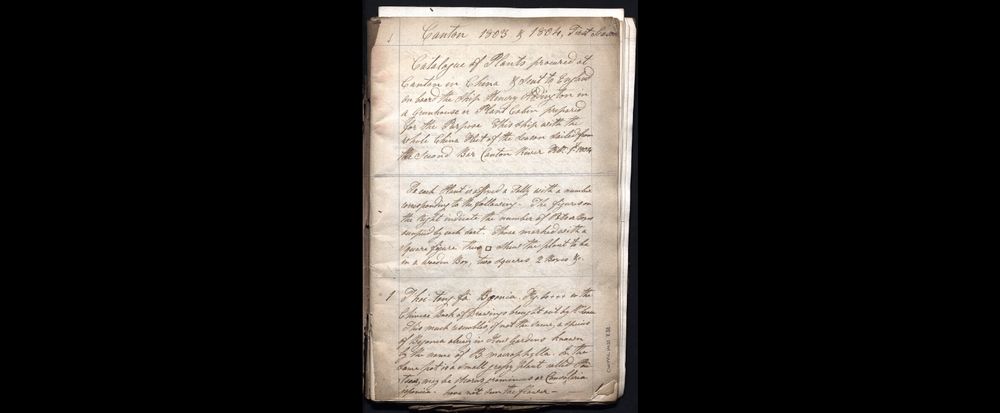 1
Canton 1803 & 1804, First Season
Catalogue of Plants procured at
Canton in China & Sent to England
on board the Ship Henry Addington in
a Greenhouse or Plant Cabin prepared
for the Purpose This ship with the
whole China Fleet of the Season Sailed from
the Second Bar Canton River 1804
To each Plant is affixed a Tally with a number
corresponding to the following. The figures on
the Right indicate the number of Pots or Boxes
occupied by each sort. Those marked with a
square figure thus □ shew the plant to be
in a wooden Box, two squares 2 Boxes &c.
1 fa in the
Chinese Book of Drawings brought out by
This much resembles, if not the same, a species
of already in Kew Gardens known
by the name of B macrophylla. In the
same pot is a small grassy plant called
may be Acorus gramineus or
have not seen the flower –